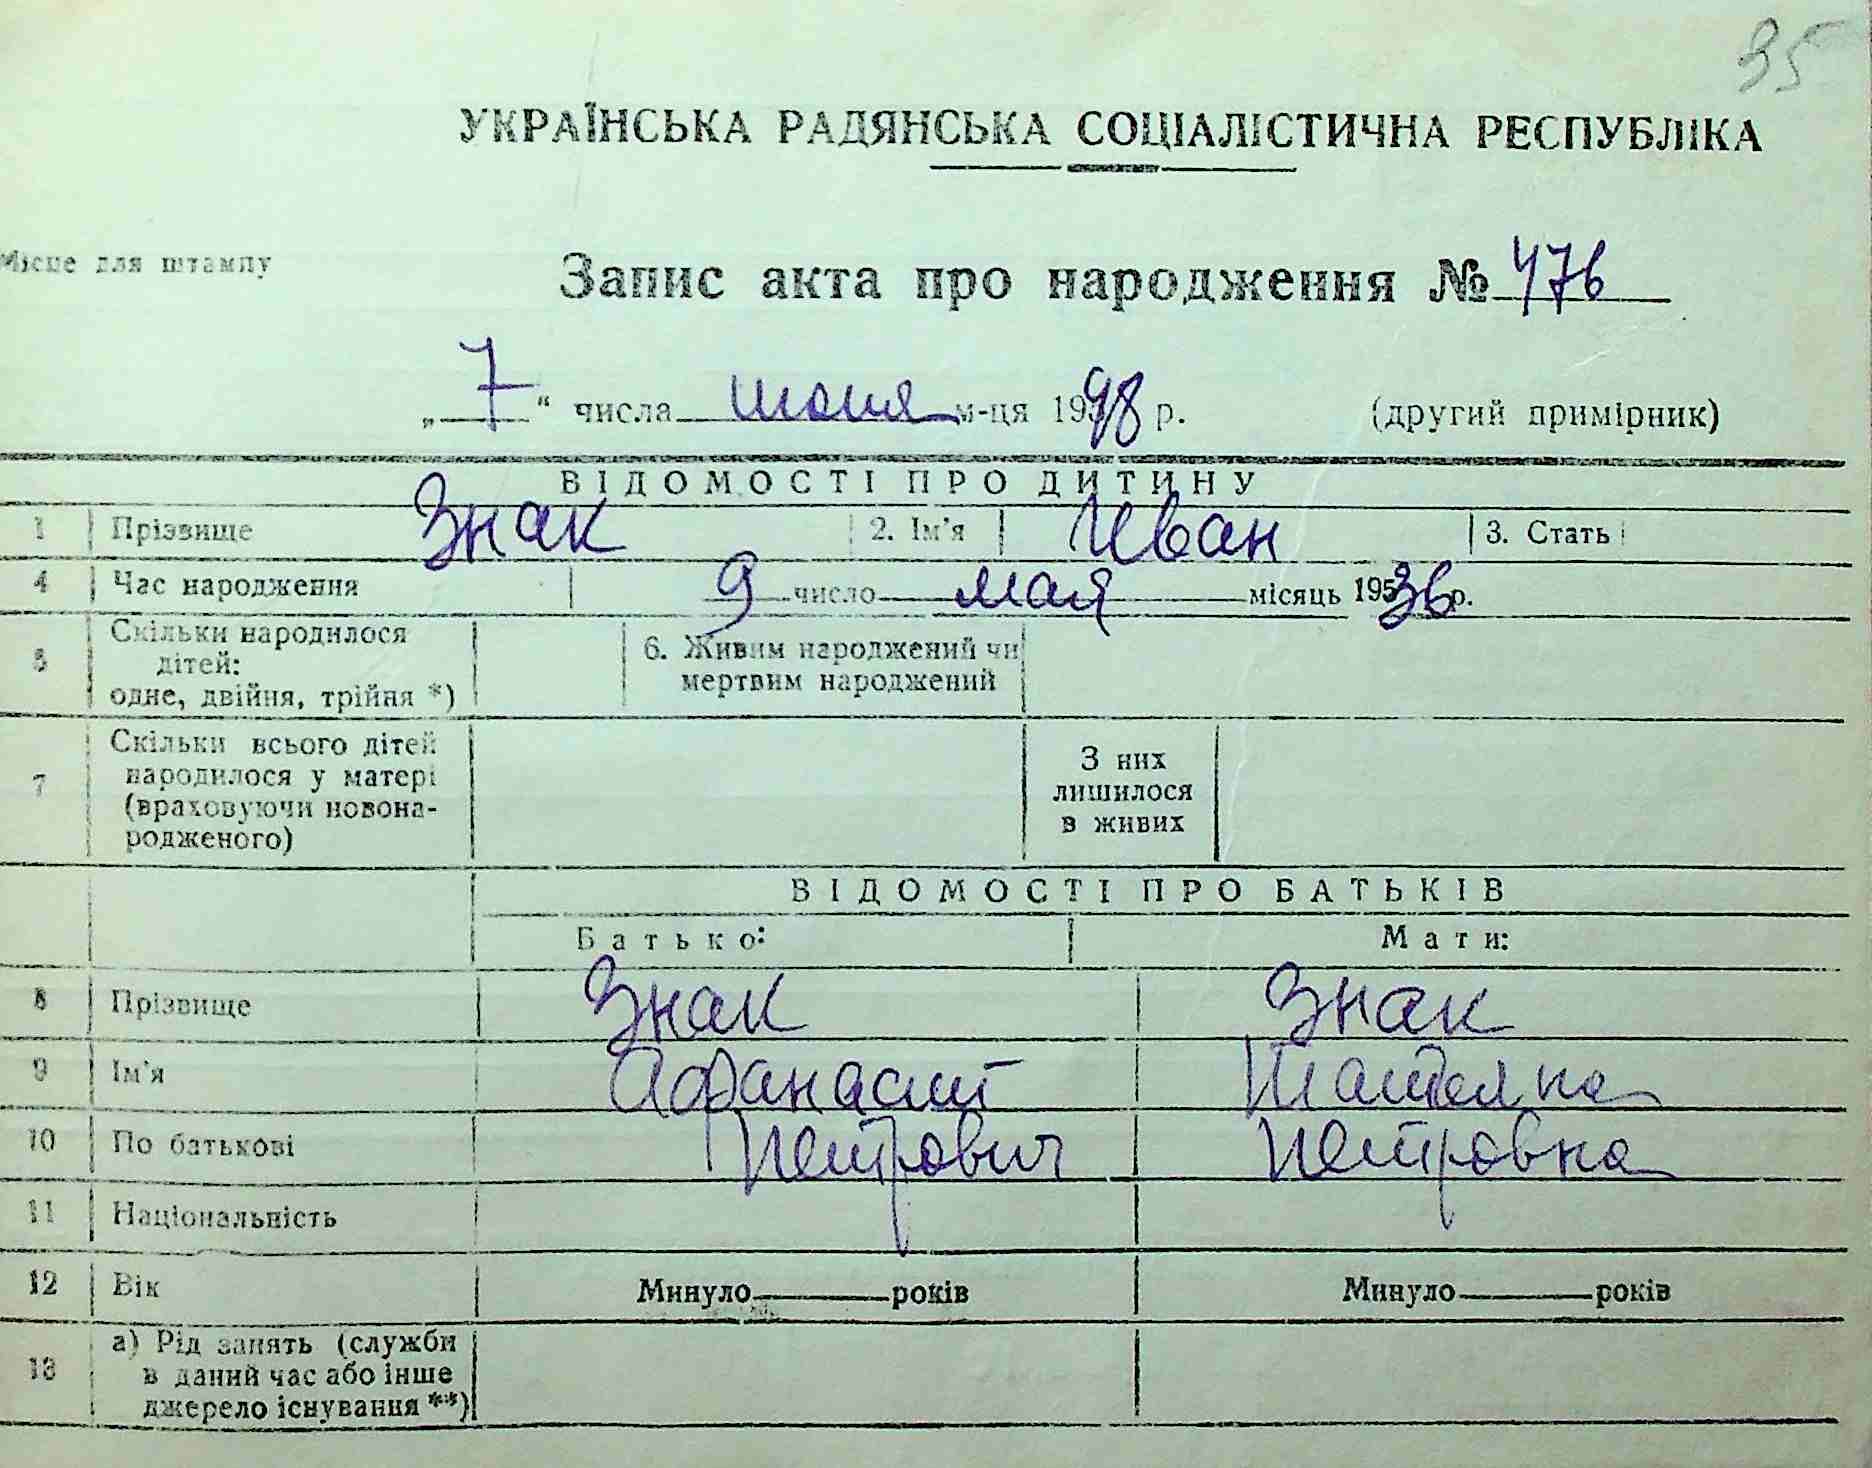 35
УКРАЇНСЬКА РАДЯНСЬКА СОЦІАЛІСТИЧНА РЕСПУБЛІКА
Місце для штампу
Запис акта про народження № 476
„7“ числа июня м-ця 1948 р. (другий примірник)
ВІДОМОСТІ ПРО ДИТИНУ
1 Прізвище Знак 2. Ім'я Иван 3. Стать
4 Час народження 9 число мая місяць 1936 р.
5 Скільки народилося дітей: одне, двійня, трійня *) 6. Живим народжений чи мертвим народжений
7 Скільки всього дітей народилося у матері (враховуючи новонародженого) З них лишилося в живих
ВІДОМОСТІ ПРО БАТЬКІВ
Батько: Мати:
8 Прізвище Знак Знак
9 Ім'я Афанасий
10 По батькові Петрович Петровна
11 Національність
12 Вік Минуло років Минуло років
13 а) Рід занять (служби в даний час або інше джерело існування **)